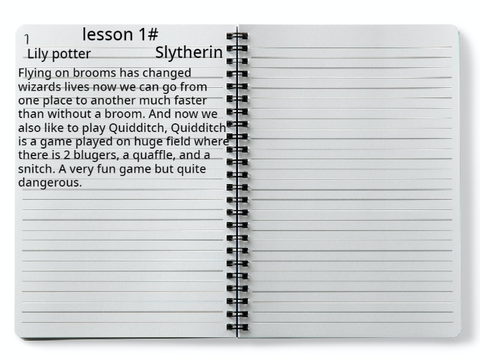 lesson 1#
Lily potter Slytherin
Flying on brooms has changed
wizards lives now we can go from
one place to another much faster
than without a broom. And now we
also like to play Quidditch, Quidditch
is a game played on huge field where
there is 2 blugers, a quaffle, and a
snitch. A very fun game but quite
dangerous.